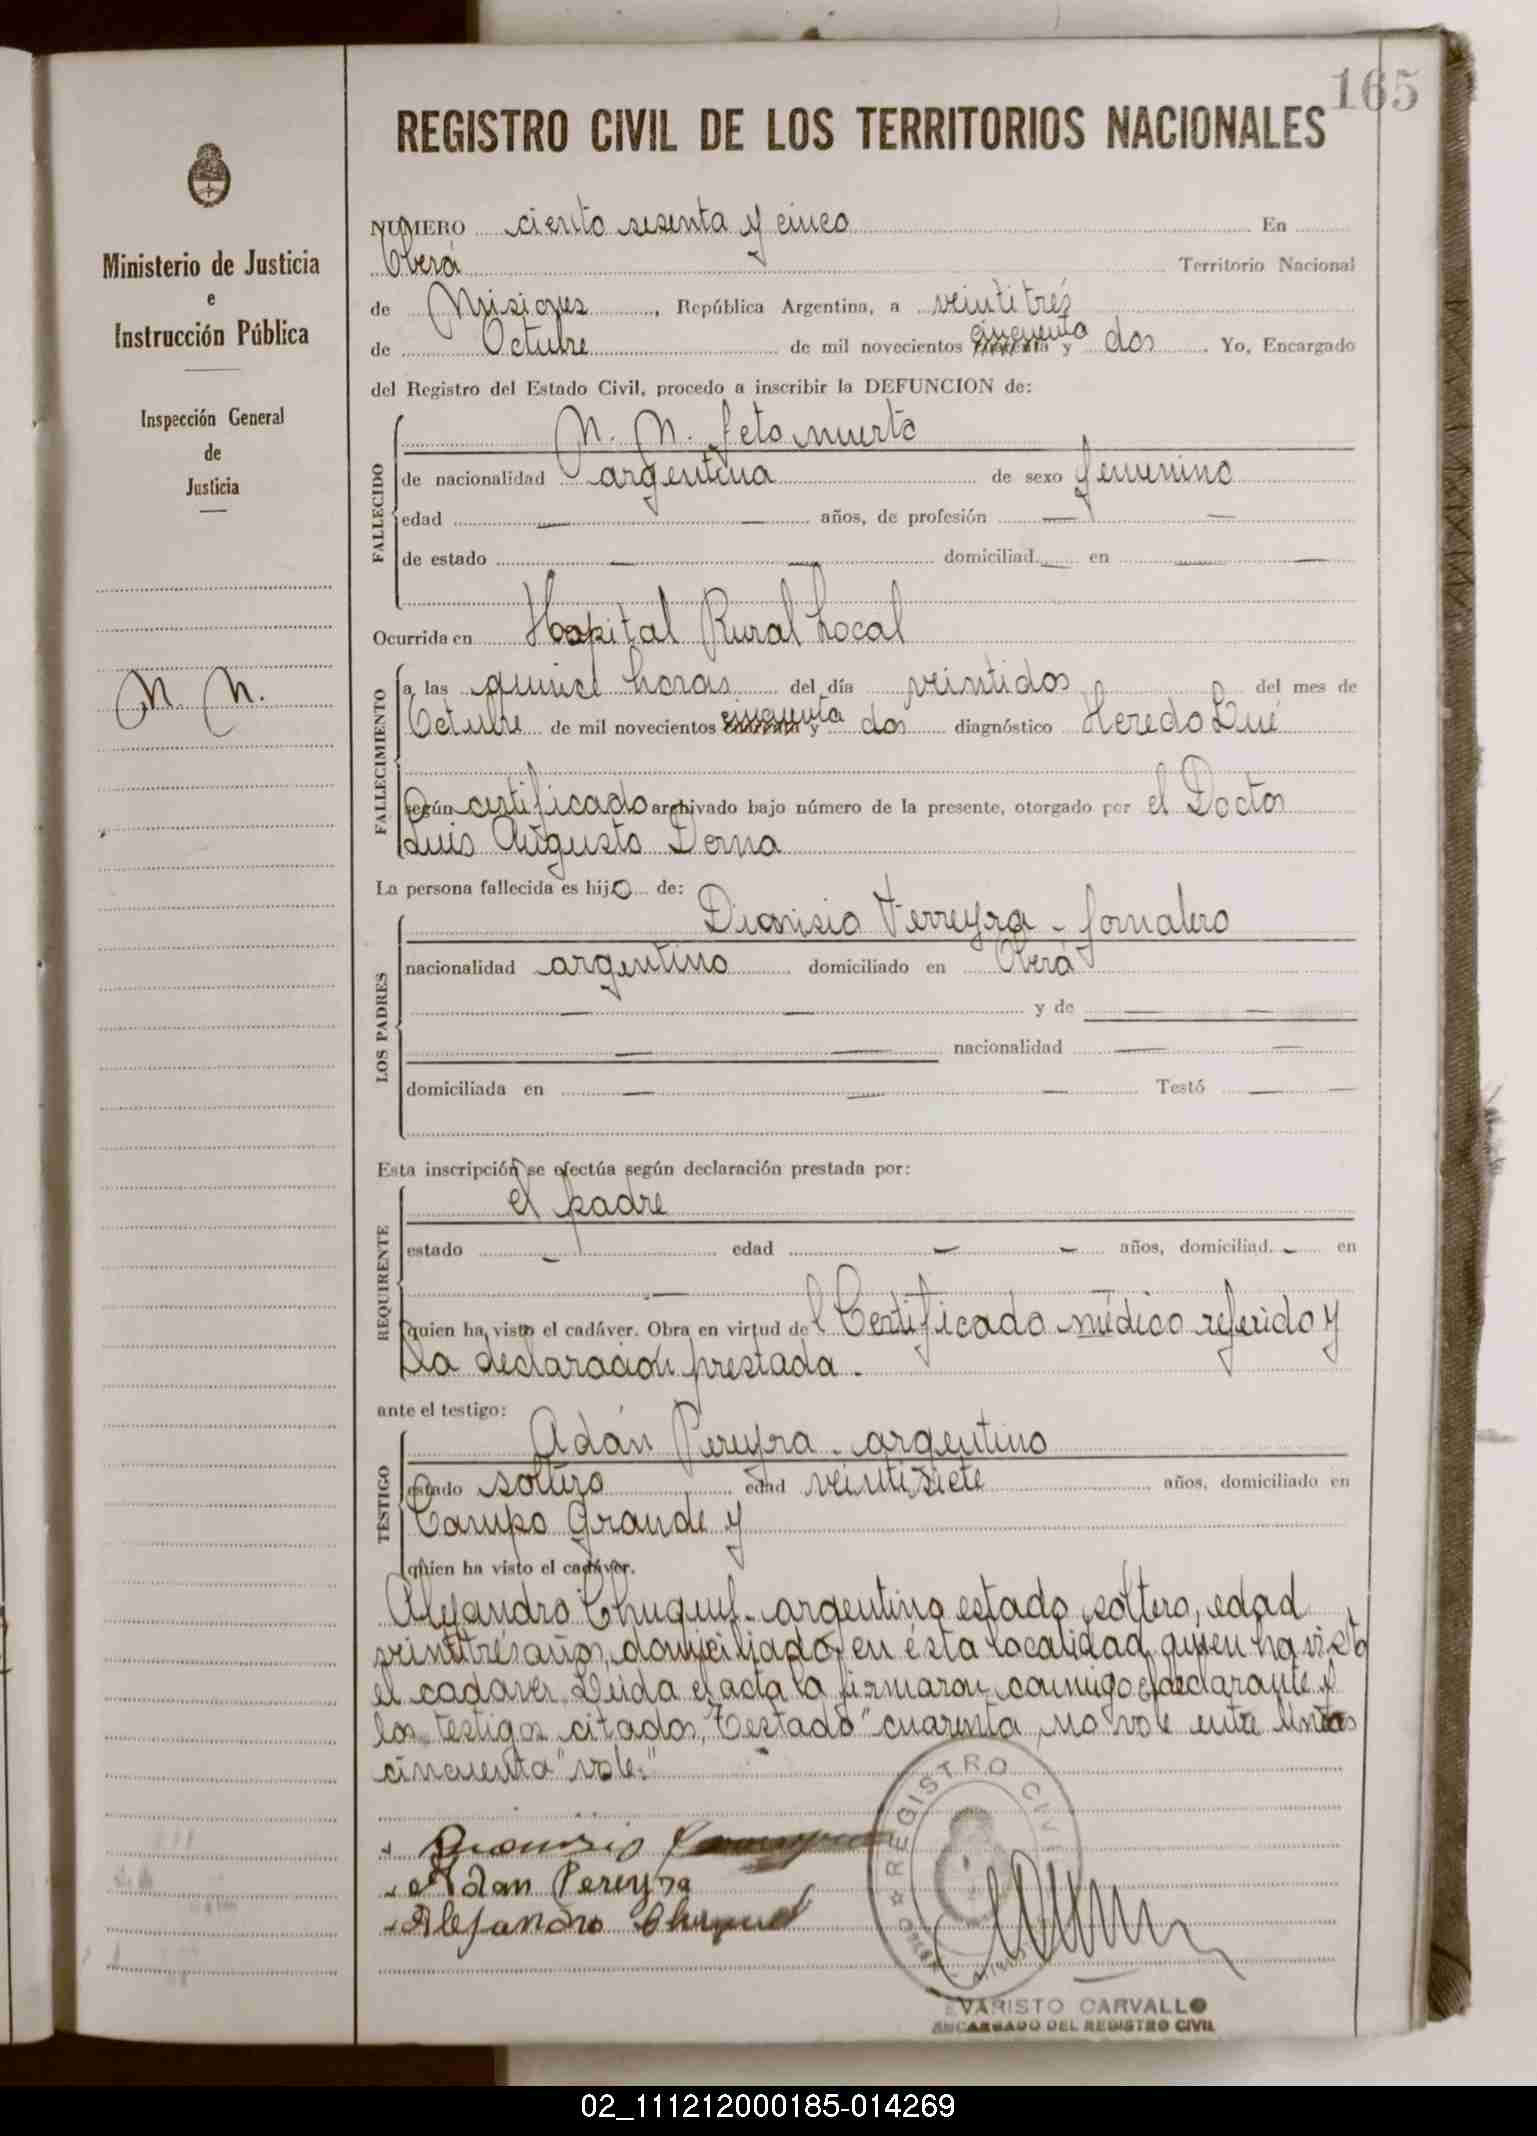 165
REGISTRO CIVIL DE LOS TERRITORIOS NACIONALES
Ministerio de Justicia
e
Instrucción Pública
Inspección General
de
Justicia
N. N.
NUMERO ciento sesenta y cinco En
Oberá Territorio Nacional
de Misiones, República Argentina, a veintitrés
de Octubre de mil novecientos cincuenta y dos. Yo, Encargado
del Registro del Estado Civil, procedo a inscribir la DEFUNCION de:
FALLECIDO
N. N. feto muerto
de nacionalidad argentina de sexo femenino
edad — — años, de profesión — —
de estado — — domiciliad — en — —
Ocurrida en Hospital Rural Local
FALLECIMIENTO
a las quince horas del día veintidos del mes de
Octubre de mil novecientos cincuenta y dos diagnóstico Heredo Lué
según certificado archivado bajo número de la presente, otorgado por el Doctor
Luis Augusto Derna
La persona fallecida es hijo de:
LOS PADRES
Dionisio Ferreyra - Jornalero
nacionalidad argentino domiciliado en Oberá
— — y de — —
— — nacionalidad — —
domiciliada en — — — Testó — —
Esta inscripción se efectúa según declaración prestada por:
REQUIRENTE
el padre
estado — edad — — años, domiciliad — en
—
quien ha visto el cadáver. Obra en virtud del Certificado médico referido y
la declaración prestada.
ante el testigo:
TESTIGO
Adán Pereyra - argentino
estado soltero edad veintisiete años, domiciliado en
Campo Grande y
quien ha visto el cadáver.
Alejandro - argentino estado soltero, edad
veintitrés años, domiciliado en ésta localidad quien ha visto
el cadáver. Leída el acta la firmaron conmigo el declarante y
los testigos citados, Testado "cuarenta no vale entre lineas
cincuenta "vale."
Dionisio
Adan Pereyra
Alejandro
REGISTRO CIVIL
EVARISTO CARVALLO
ENCARGADO DEL REGISTRO CIVIL
02_111212000185-014269